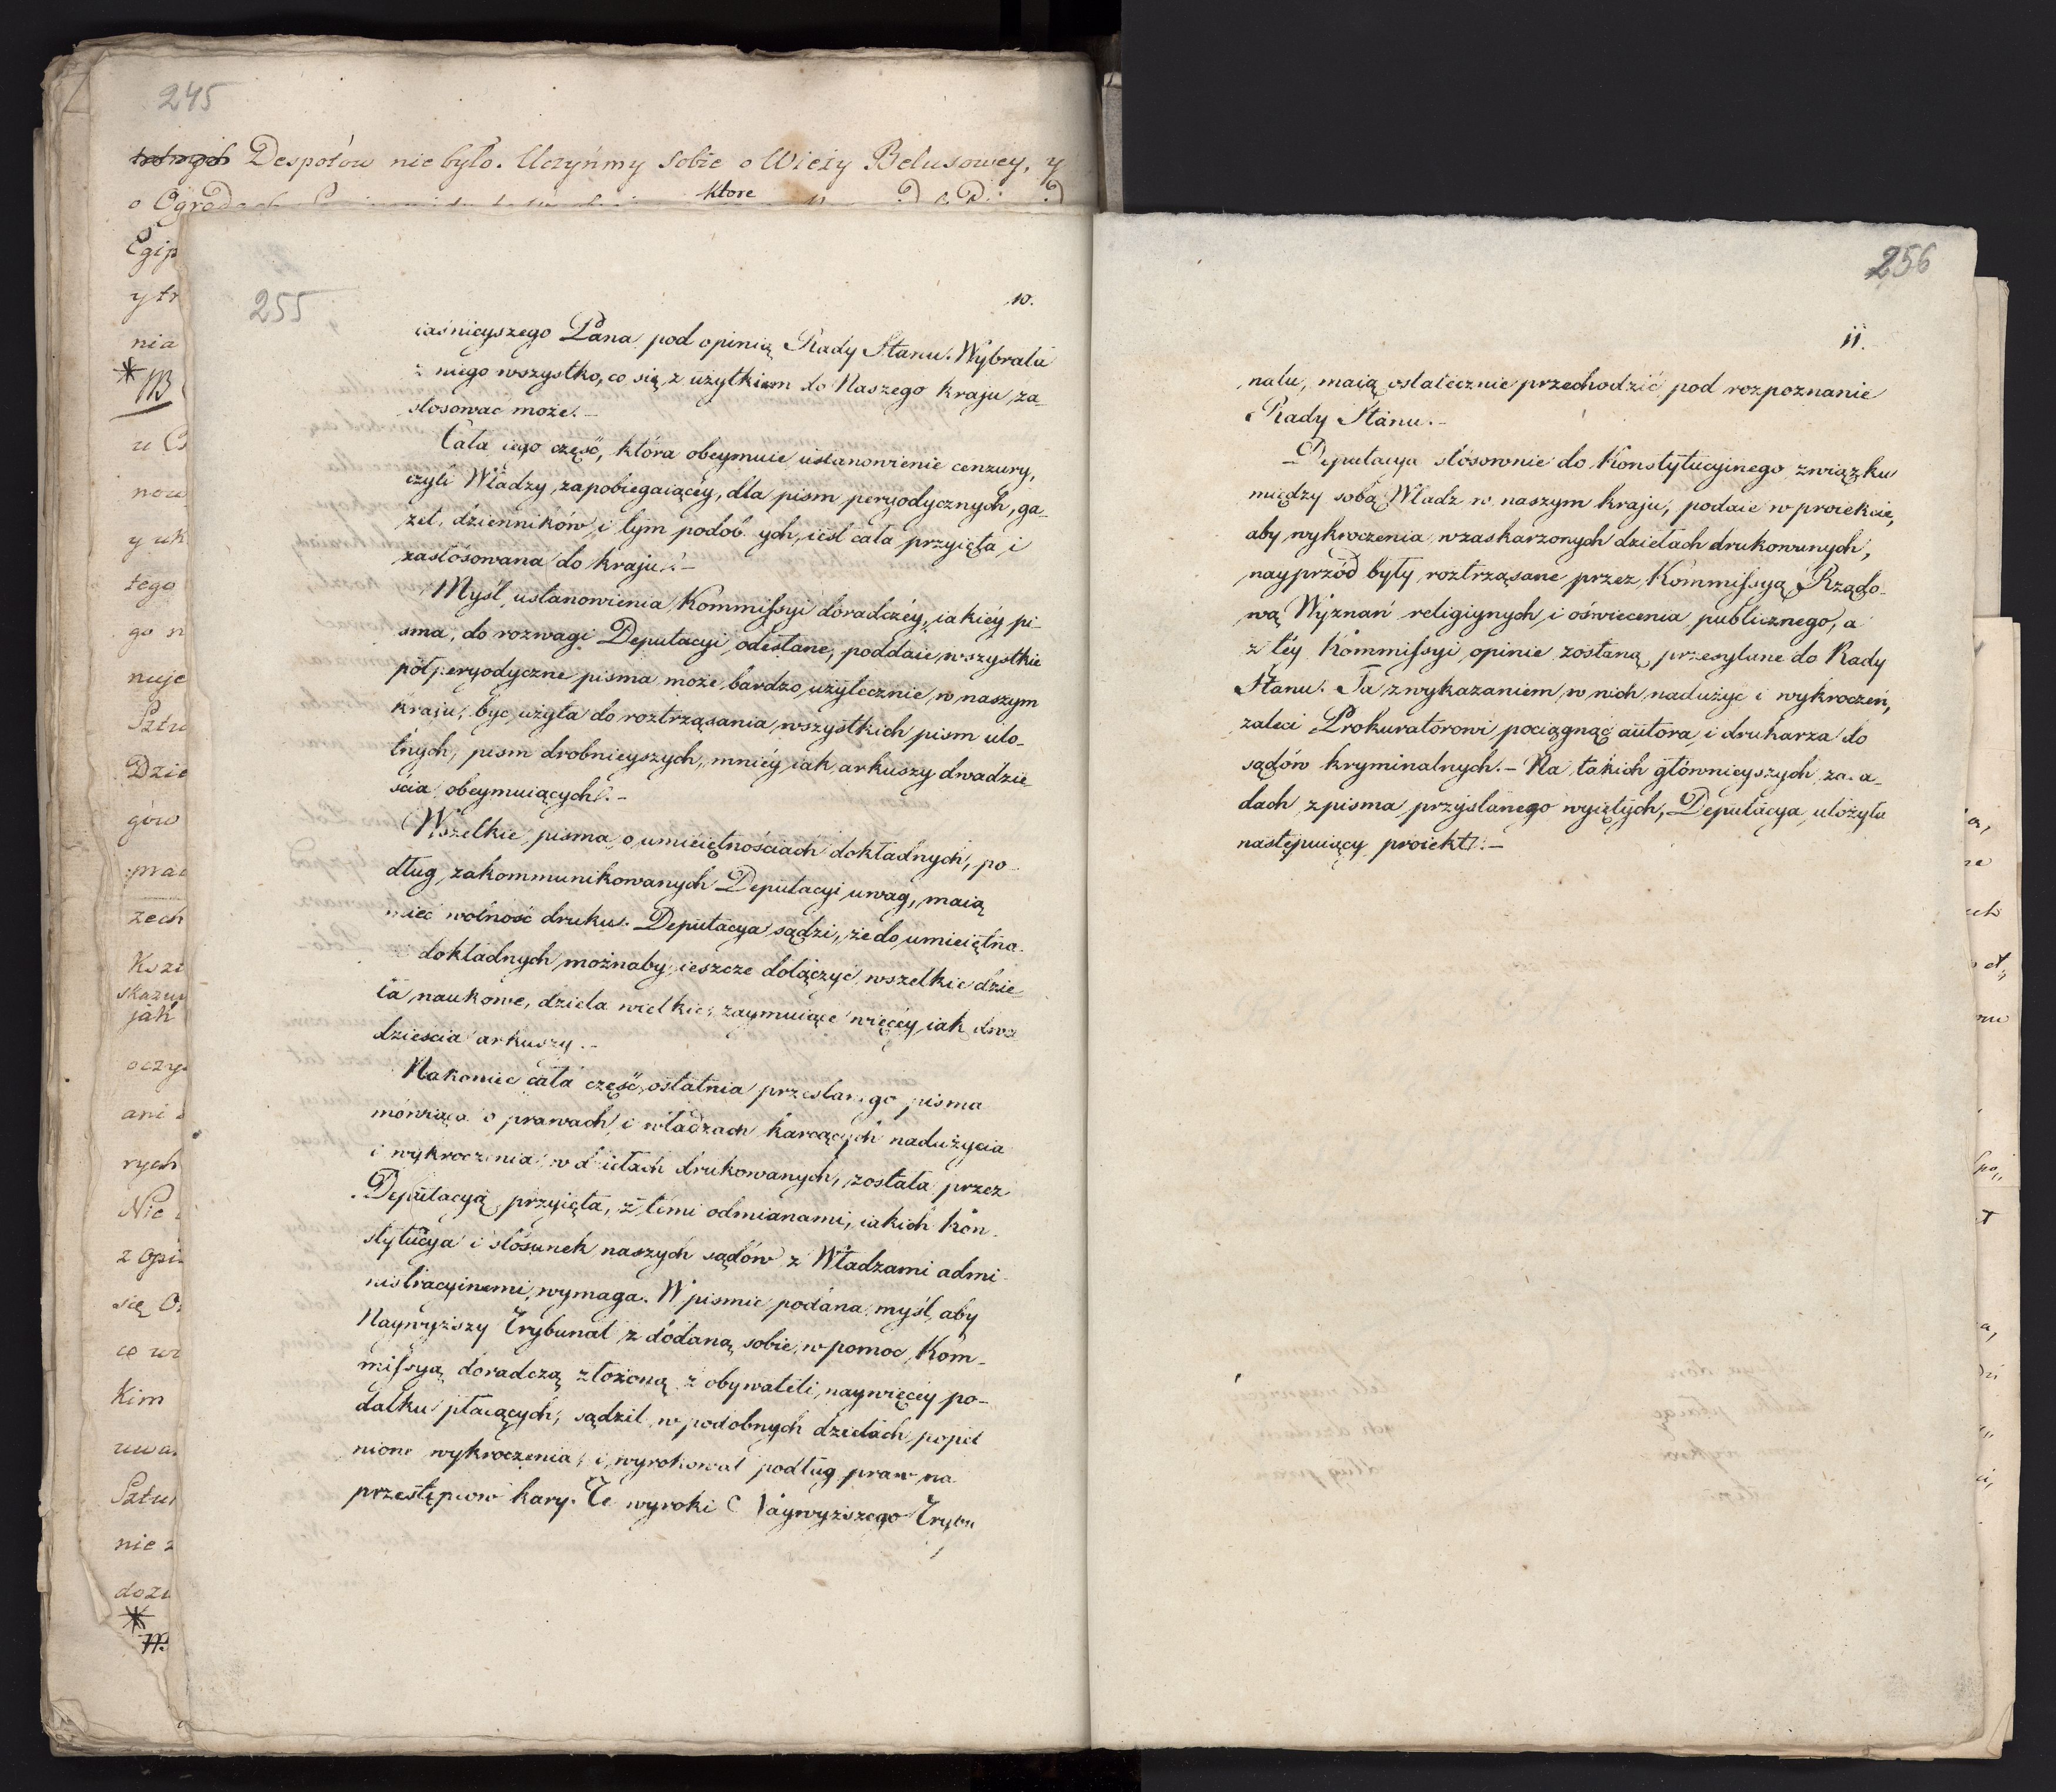 245
Despotów nie było. Uczyńmy sobie o Wieży Belusowey, y
ktore
o Ogrodach
Egip
y tr
nia
NB
u C
now
y uk
tego
go n
nuje
Sztu
Dzie
gów
prac
zech
Kszt
skazu
jak
oczy
ani
rych
Nie
z opi
się O
co w
kim
uwa
Sztu
nie z
dozu
255
10.
iaśnieyszego Pana pod opinią Rady Stanu. Wybrała
z niego wszystko, co się z użytkiem do Naszego kraju za-
stosować może. –
Cała iego część, która obeymuie ustanowienie cenzury,
czyli Władzy zapobiegaiącéy, dla pism peryodycznych, ga-
zet, dzienników i tym podob ych, iest cała przyięta i
zastósowana do kraju. –
Myśl ustanowienia Kommissyi doradczéy, iakiéy pi-
sma, do rozwagi Deputacyi odesłane, poddaie wszystkie
półperyodyczne pisma może bardzo użytecznie w naszym
kraju, być użyta do roztrząsania wszystkich pism ulo-
tnych, pism drobnieyszych, mniéy iak arkuszy dwadzie-
ścia obeymuiących. –
Wszelkie pisma o umieiętnościach dokładnych, po-
dług zakommunikowanych Deputacyi uwag, maią
mieć wolność druku. Deputacya sądzi, że do umieiętno-
dokładnych możnaby ieszcze dołączyć wszelkie dzie-
ła naukowe, dzieła wielkie, zaymuiące więcéy iak dwa
dzieścia arkuszy. –
Nakoniec cała część ostatnia przesłanego pisma
mówiąca o prawach i władzach karcących nadużycia
i wykroczenia w dziełach drukowanych, została przez
Deputacyą przyięta, z temi odmianami, iakich Kon-
stytucya i stósunek naszych sądów z Władzami admi-
nistracyinemi wymaga. W pismie podana myśl, aby
Naywyższy Trybunał z dodaną sobie w pomoc Kom-
missyą doradczą złożoną z obywateli naywięcéy po-
datku płacących, sądził w podobnych dziełach popeł
nione wykroczenia i wyrokował podług praw na
przestępców kary. Te wyroki Naywyższego Trybu
256
11.
nału, maią ostatecznie przechodzić pod rozpoznanie
Rady Stanu. –
Deputacya stósownie do Konstytucyinego związku
między sobą Władz w naszym kraju, podaie w proiekcie,
aby wykroczenia w zaskarzonych dziełach drukowanych,
nayprzód były roztrząsane przez Kommissyą Rządo-
wą Wyznań religiynych i oświecenia publicznego, a
z téy Kommissyi opinie zostaną przesyłane do Rady
Stanu. Ta z wykazaniem w nich nadużyć i wykroczeń,
zaleci Prokuratorowi pociągnąć autora i drukarza do
sądów kryminalnych. – Na takich głównieyszych za a-
dach z pisma przysłanego wyiętych, Deputacya ułożyła
następuiący proiekt. –